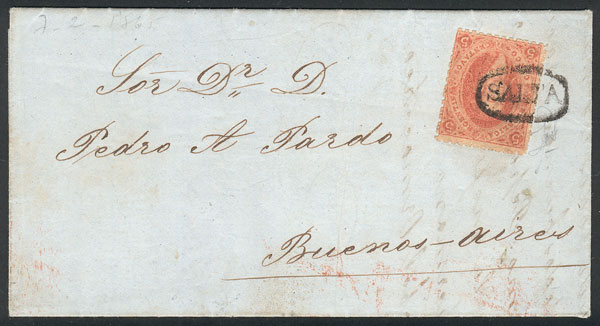 7-2-1865
Sor Dr. D.
SALTA
Pedro A Pardo
Buenos-aires